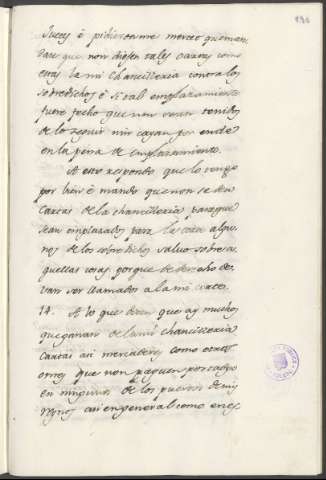 136
Jueces é pidieronme merced que man
dase que non diesen tales cartas como
estas la mi Chancilleria contra los
sobredichos é si tall emplazamiento
fuere fecho que non sean tenidos
de lo seguir nin cayan por ende
en la pena de emplazamiento.
A esto respondo que lo tengo
por bien é mando que non se den
cartas de la chancilleria para que
sean emplazados para la corte algu
nos de los sobredichos salvo sobre a
quellas cosas por que de derecho de
van ser llamados a la mi corte.
14. A lo que dicen que ay muchos
que ganan de la mi chancilleria
cartas asi mercaderes como otros
omes que non paguen portadgo
en ningunos de los puertos de mis
regnos asi en general como en es